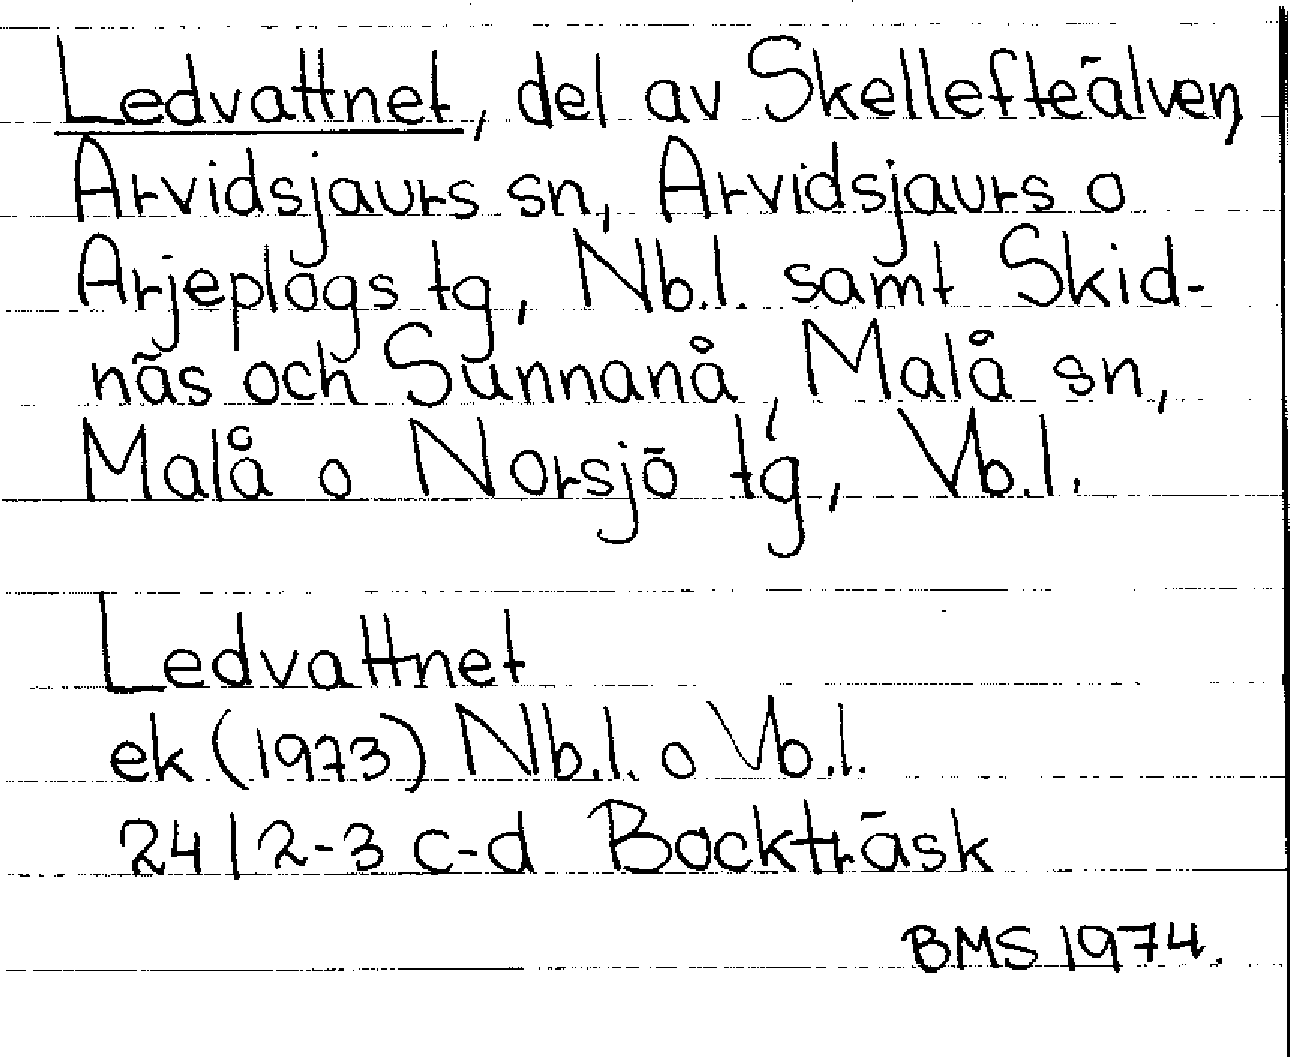 Ledvattnet, del av Skellefteälven,
Arvidsjaurs sn, Arvidsjaurs o
Arjeplogs tg, Nb.l. samt Skid-
näs och Sunnanå, Malå sn,
Malå o Norsjö tg, Vb.l.
Ledvattnet
ek (1973) Nb.l. o Vb.l.
24 I 2-3 c-d Bockträsk
BMS 1974.